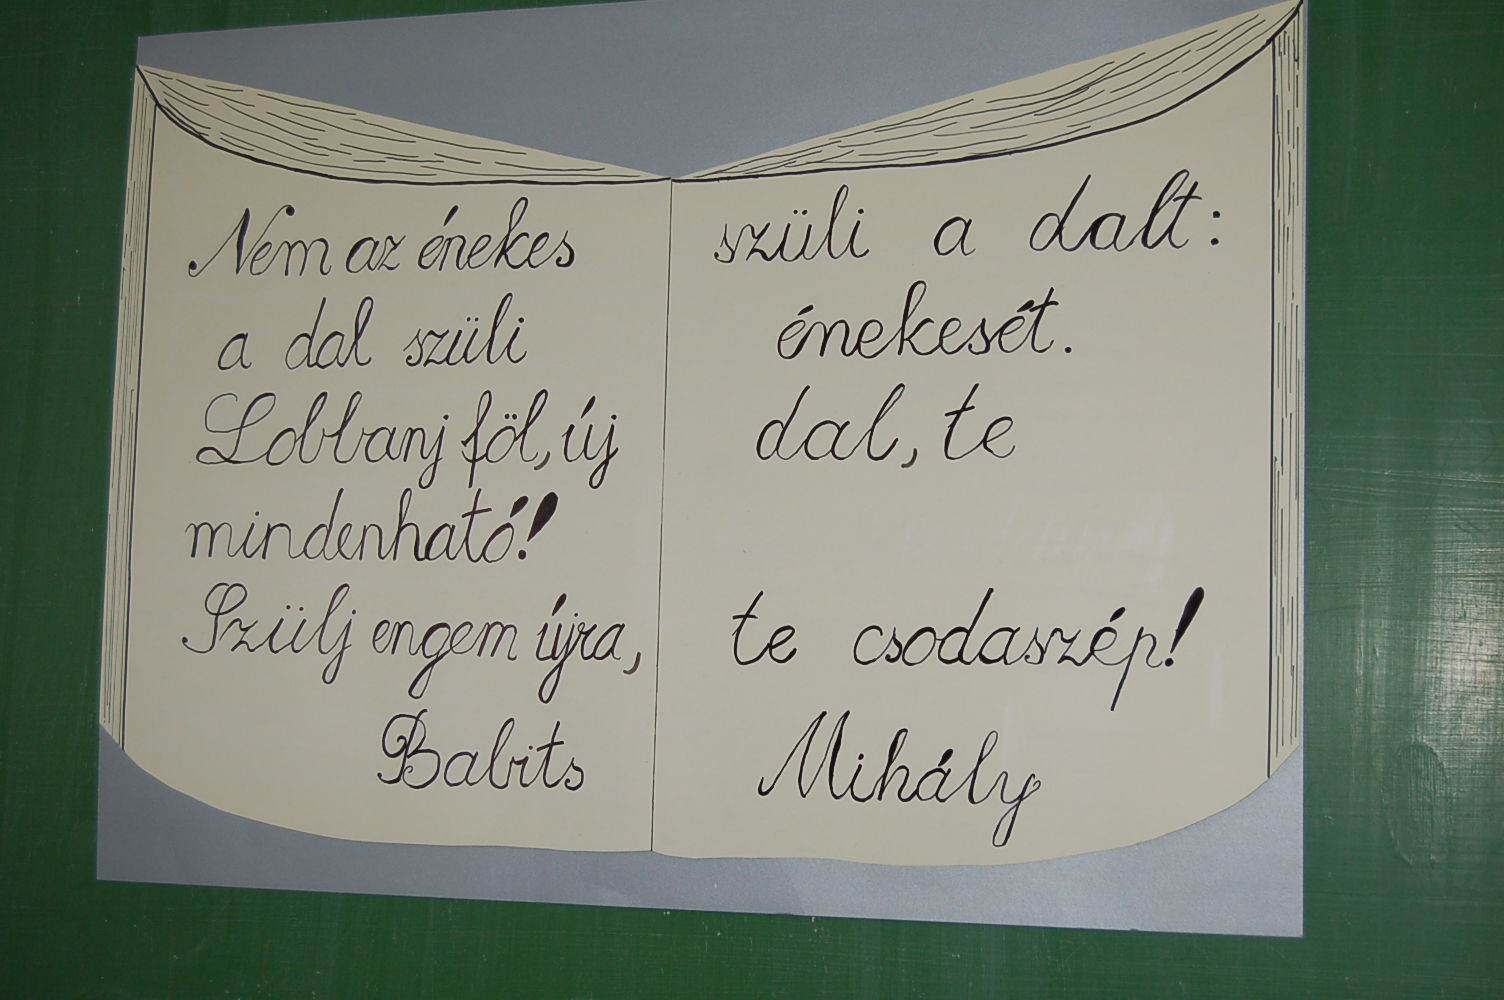 Nem az énekes szüli a dalt:
a dal szüli énekesét.
Lobbanj föl, új dal, te
mindenható!
Szülj engem újra, te csodaszép!
Babits Mihály